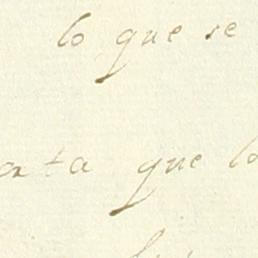 lo que se
ata que lo